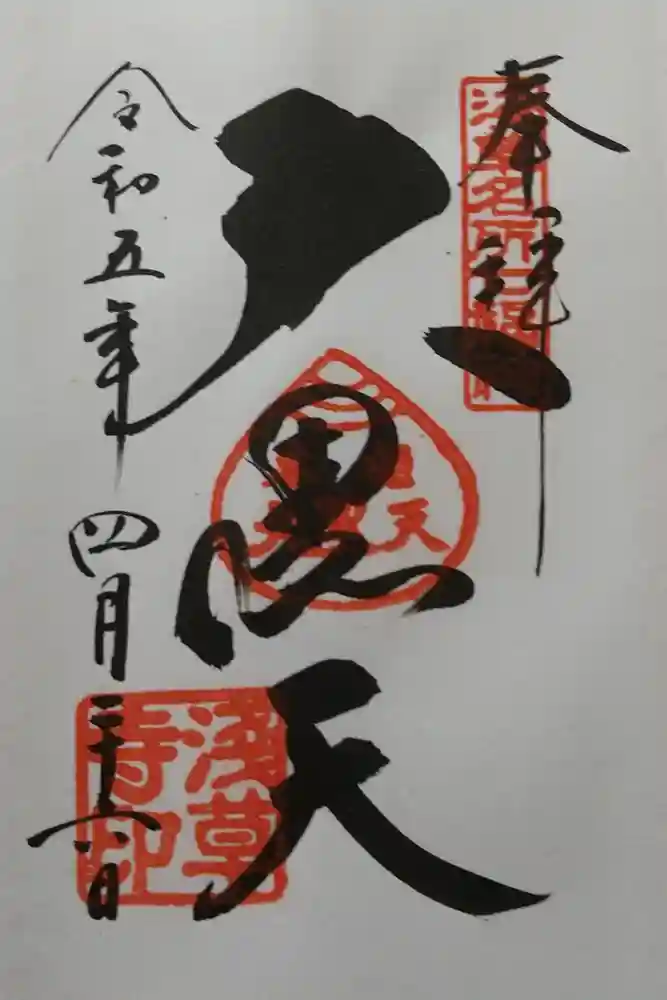 奉拝
浅草名所七福神
大黒天
令和五年四月二十六日
浅草
寺印